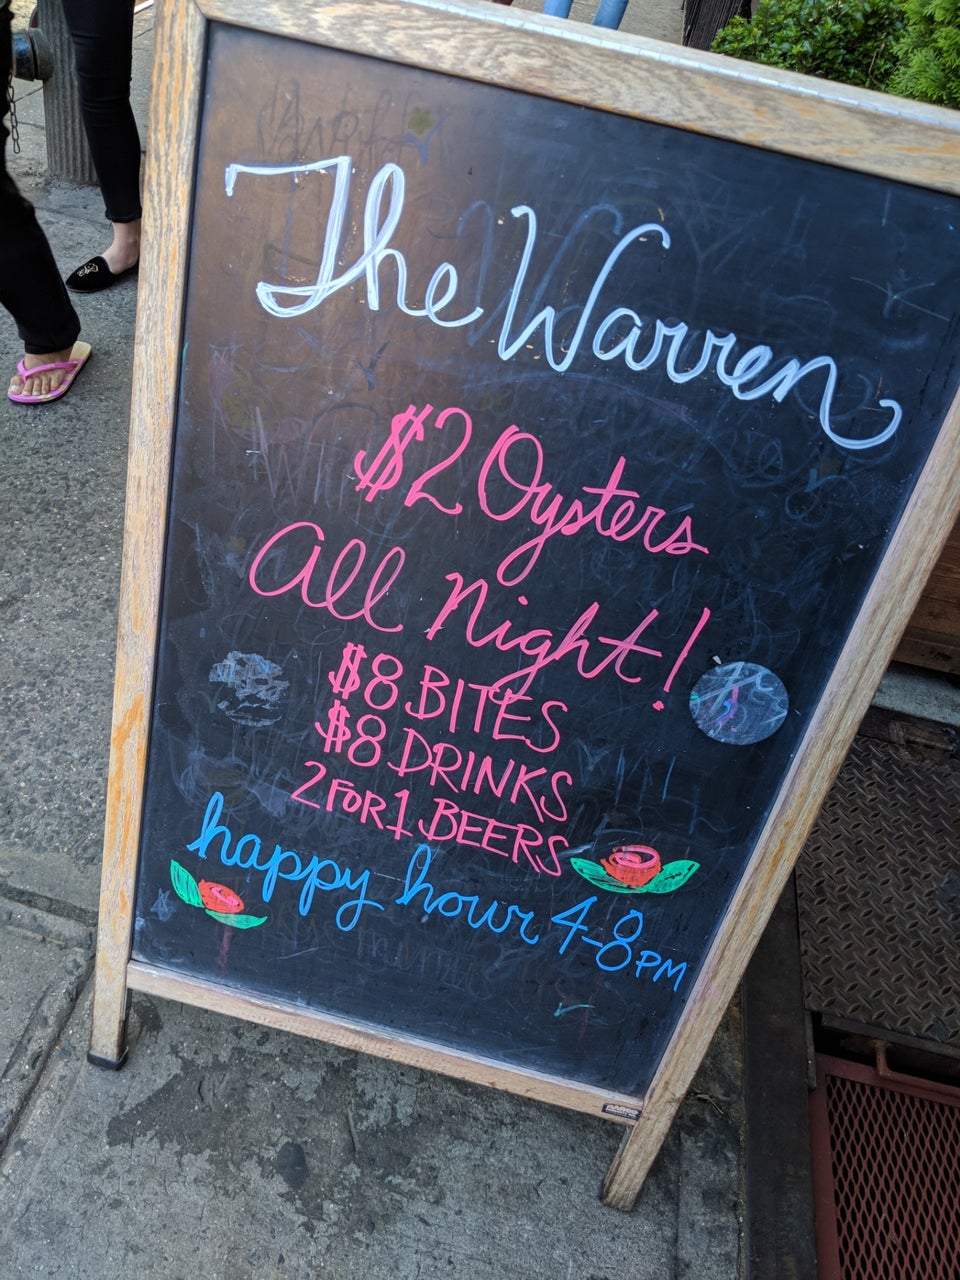 The Warren
$2 Oysters
All Night!
$8 BITES
$8 DRINKS
2 FOR 1 BEERS
happy hour 4-8PM